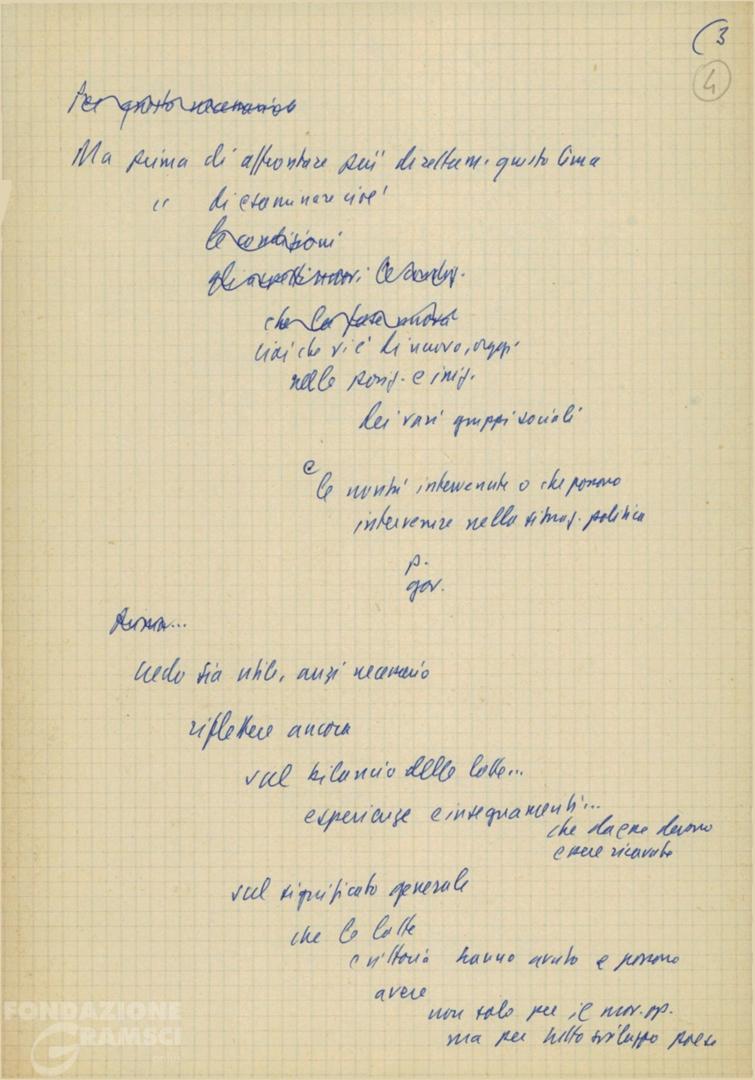 (3
4
Per questo necessario
Ma prima di affrontare più direttam. questo tema
" di esaminare cioè
le condizioni
gli aspetti nuovi
che la fase nuova
ciò che vi è di nuovo, oggi
nelle posiz. e iniz.
dei vari gruppi sociali
e
le novità intervenute o che possono
intervenire nella situaz. politica
p.
gov.
Prima...
credo sia utile, anzi necessario
riflettere ancora
sul bilancio delle lotte...
esperienze e insegnamenti...
che da esse devono
essere ricavate
sul significato generale
che le lotte
e vittoria hanno avuto e possono
avere
non solo per il mov. op.
ma per tutto sviluppo paese
FONDAZIONE
GRAMSCI